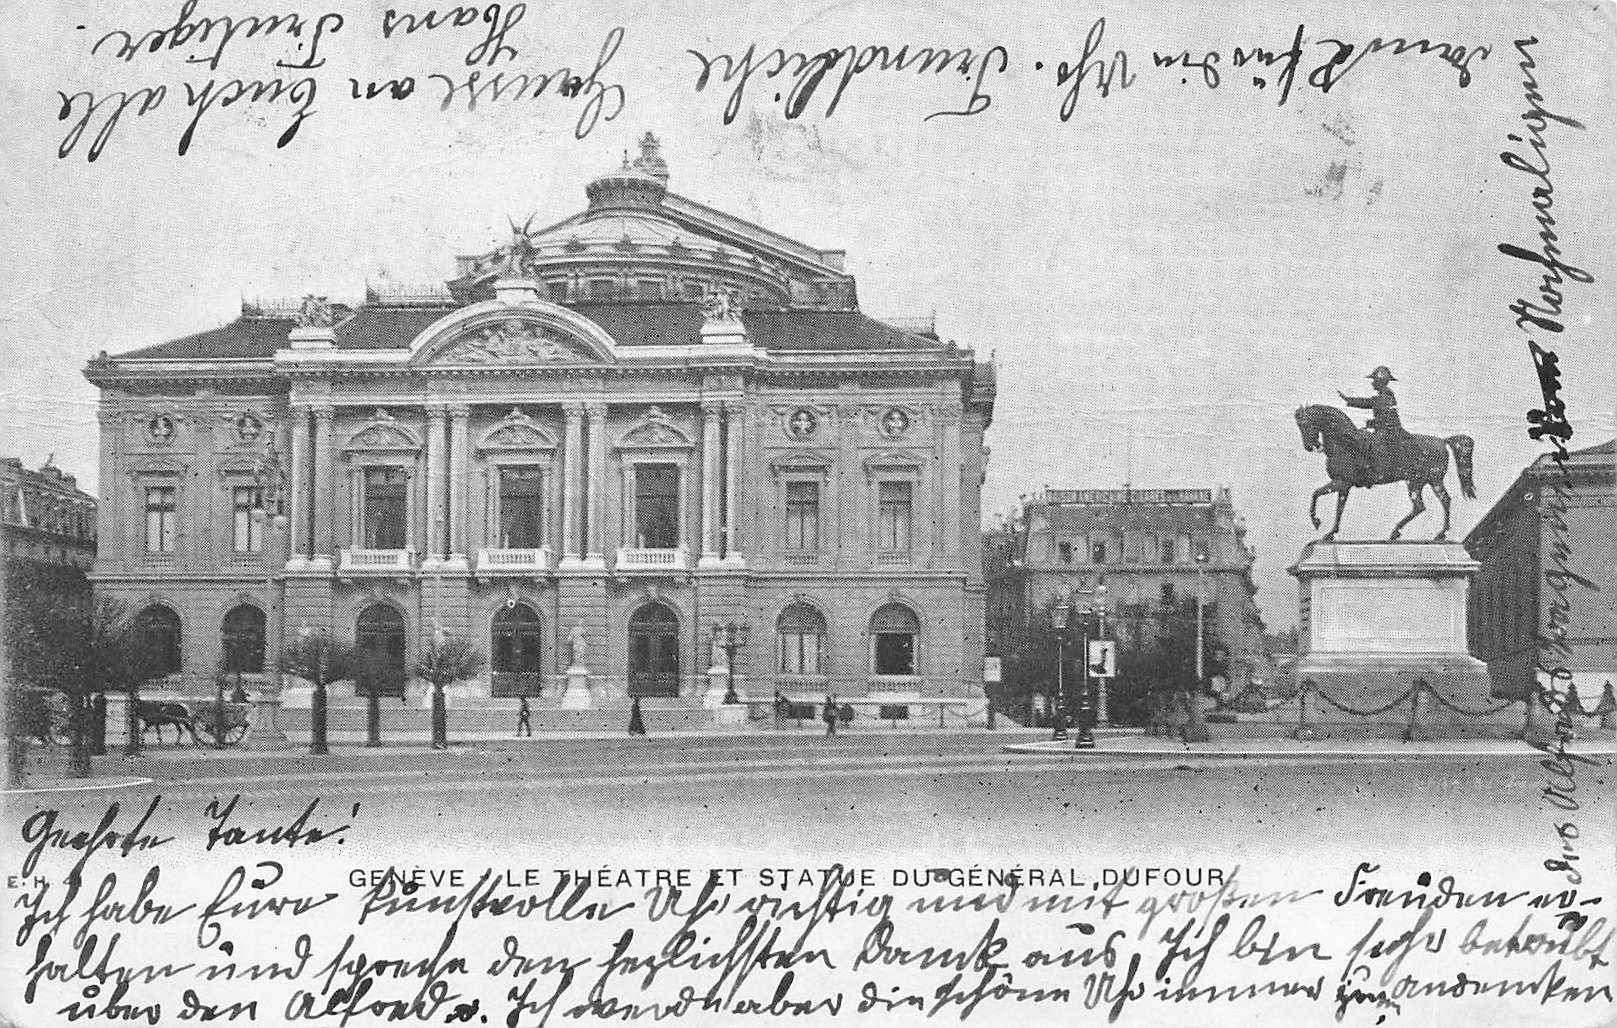 Geehrte Tante!
E. H. 4
GENÈVE - LE THÉATRE ET STATUE DU GÉNÉRAL DUFOUR
Ich habe Eure kunstvolle Uhr richtig und mit großen Freuden er-
halten und spreche den hezlichsten Damk aus. Ich bin sehr betrübt
über den Alfred. Ich werde aber die schöne Uhr immer zum andencken
des Alfred tragen. Nochmaligen
Dank für die Uhr. Freundliche
Grüsse an Euch alle
Hans Frutiger.